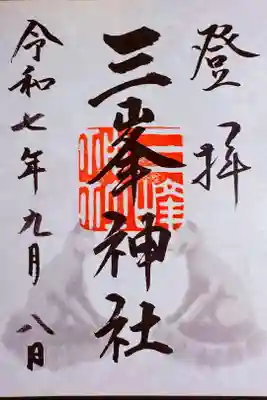 登拝
三峯神社
令和七年九月八日